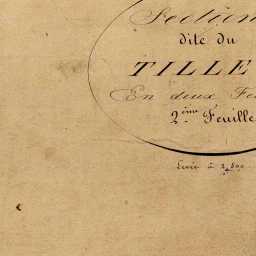 Section
dite du
TILLE
En deux Feu
2ème Feuille
Levée à